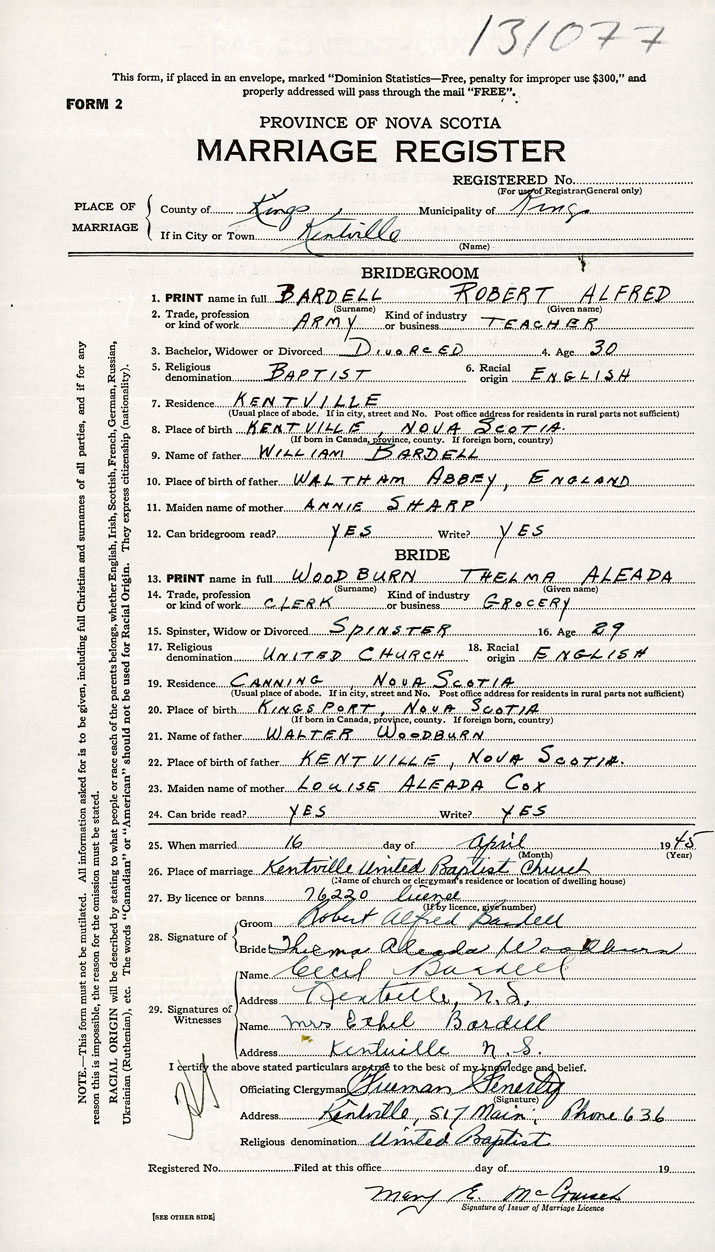 131077
This form, if placed in an envelope, marked "Dominion Statistics—Free, penalty for improper use $300," and
properly addressed will pass through the mail "FREE".
FORM 2
PROVINCE OF NOVA SCOTIA
MARRIAGE REGISTER
REGISTERED No.
(For use of Registrar General only)
PLACE OF MARRIAGE
County of Kings Municipality of Kings
If in City or Town Kentville
(Name)
BRIDEGROOM
1. PRINT name in full BARDELL ROBERT ALFRED
(Surname) (Given name)
2. Trade, profession or kind of work ARMY Kind of industry or business TEACHER
3. Bachelor, Widower or Divorced DIVORCED 4. Age 30
5. Religious denomination BAPTIST 6. Racial origin ENGLISH
7. Residence KENTVILLE
(Usual place of abode. If in city, street and No. Post office address for residents in rural parts not sufficient)
8. Place of birth KENTVILLE, NOVA SCOTIA.
(If born in Canada, province, county. If foreign born, country)
9. Name of father WILLIAM BARDELL
10. Place of birth of father WALTHAM ABBEY, ENGLAND
11. Maiden name of mother ANNIE SHARP
12. Can bridegroom read? YES Write? YES
BRIDE
13. PRINT name in full WOODBURN THELMA ALEADA
(Surname) (Given name)
14. Trade, profession or kind of work CLERK Kind of industry or business GROCERY
15. Spinster, Widow or Divorced SPINSTER 16. Age 29
17. Religious denomination UNITED CHURCH 18. Racial origin ENGLISH
19. Residence CANNING, NOVA SCOTIA
(Usual place of abode. If in city, street and No. Post office address for residents in rural parts not sufficient)
20. Place of birth KINGSPORT, NOVA SCOTIA
(If born in Canada, province, county. If foreign born, country)
21. Name of father WALTER WOODBURN
22. Place of birth of father KENTVILLE, NOVA SCOTIA.
23. Maiden name of mother LOUISE ALEADA COX
24. Can bride read? YES Write? YES
25. When married 16 day of April 1945
(Month) (Year)
26. Place of marriage Kentville United Baptist Church
(Name of church or clergyman's residence or location of dwelling house)
27. By licence or banns 76220 licence
(If by licence, give number)
28. Signature of
Groom Robert Alfred Bardell
Bride Thelma Aleada Woodburn
29. Signatures of Witnesses
Name Cecil Bardell
Address Kentville, N.S.
Name Mrs Ethel Bardell
Address Kentville N.S.
I certify the above stated particulars are true to the best of my knowledge and belief.
Officiating Clergyman Freeman Fenerty
(Signature)
Address Kentville, 517 Main, Phone 636
Religious denomination United Baptist
Registered No. Filed at this office day of 19
Mary E.
Signature of Issuer of Marriage Licence
[SEE OTHER SIDE]
NOTE.—This form must not be mutilated. All information asked for is to be given, including full Christian and surnames of all parties, and if for any
reason this is impossible, the reason for the omission must be stated.
RACIAL ORIGIN will be described by stating to what people or race each of the parents belongs, whether English, Irish, Scottish, French, German, Russian,
Ukrainian (Ruthenian), etc. The words "Canadian" or "American" should not be used for Racial Origin. They express citizenship (nationality).